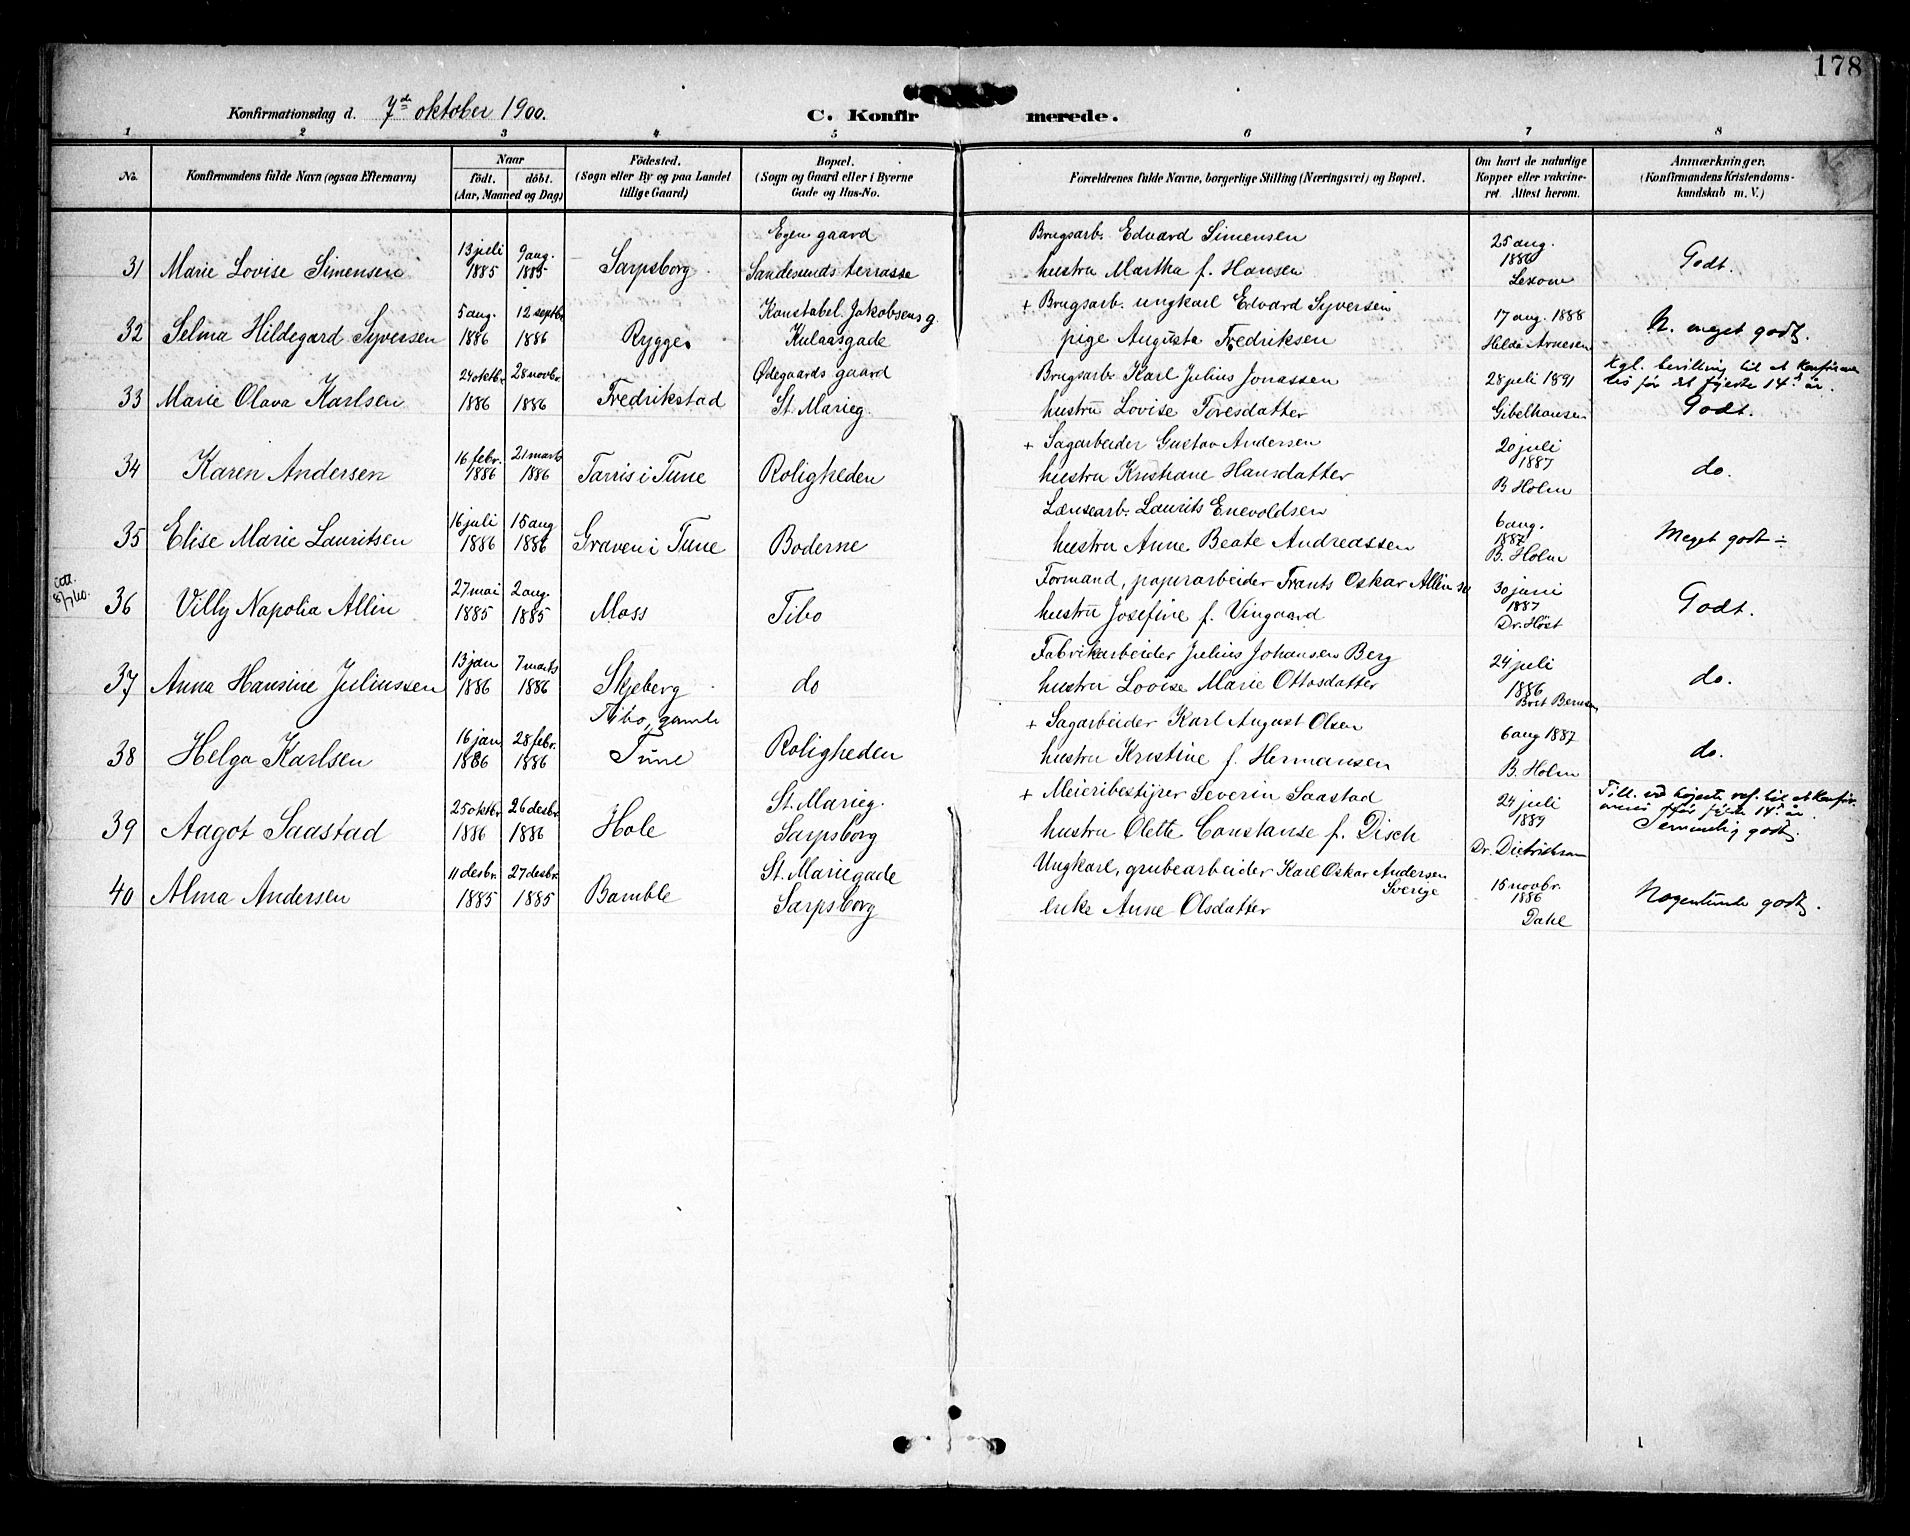 178
Konfirmationsdag d. 7de oktober 1900.
C. Konfirmerede.
1 2 3 4 5 6 7 8
No.
Konfirmandens fulde Navn (ogsaa Efternavn)
Naar
født. døbt.
(Aar, Maaned og Dag)
Fødested.
(Sogn eller By og paa Landet
tillige Gaard)
Bopæl.
(Sogn og Gaard eller i Byerne
Gade og Hus-No.
Forældrenes fulde Navne, borgerlige Stilling (Næringsvei) og Bopæl.
Om havt de naturlige
Kopper eller vakcine-
ret. Attest herom.
Anmærkninger.
(Konfirmandens Kristendoms-
kundskab m. V.)
31 Marie Lovise Simensen
13 juli 1885
9 aug. 1885
Sarpsborg
Egen gaard
Sandesunds terrasse
Brugsarb. Edvard Simensen
hustru Martha f. Hansen
25 aug.
1886
Lexow
Godt.
32 Selma Hildegard Syversen
5 aug. 1886
12 septbr 1886
Rygge
Konstabel Jakobsens g.
Kulaasgade
+ Brugsarb. ungkarl Edvard Syversen
pige Augusta Fredriksen
17 aug. 1888
Hilda Arnesen
N. meget godt.
33 Marie Olava Karlsen
24 oktbr. 1886
28 novbr. 1886
Fredrikstad
Ødegaards gaard
St. Marieg.
Brugsarb. Karl Julius Jonassen
hustru Lovise Toresdatter
28 juli 1891
Gibelhausen
Kgl. bevilling til at konfirme
res før det fyldte 14d år.
Godt.
34 Karen Andersen
16 febr. 1886
21 marts 1886
Tarris i Tune
Roligheden
+ Sagarbeider Gustav Andersen
hustru Kristiane Hansdatter
20 juli
1887
B Holm
do.
35 Elise Marie Lauritsen
16 juli 1886
15 aug 1886
Graven i Tune
Boderne
Lænsearb. Laurits Enevoldsen
hustru Anne Beate Andreassen
6 aug.
1887
B. Holm
Meget godt ÷
8/7 40.
36 Villy Napolia Allin
27 mai 1885
2 aug. 1885
Moss
Tibo
Formand, papirarbeider Frants Oskar Allin
hustru Josefine f. Vingaard
30 juni
1887
Dr. Höst
Godt.
37 Anna Hansine Juliussen
13 jan 1886
7 marts 1886
Skjeberg
do
Fabrikarbeider Julius Johansen Berg
hustru Lovise Marie Ottosdatter
24 juli
1886
do.
38 Helga Karlsen
16 jan 1886
28 febr. 1886
Tibo, gamle
Tune
Roligheden
+ Sagarbeider Karl August Olsen
hustru Kristine f. Hermansen
6 aug 1887
B. Holm
do.
39 Aagot Saastad
25 oktbr 1886
26 desbr. 1886
Hole
St. Marieg.
Sarpsborg
+ Meieribestyrer Severin Saastad
hustru Olette Constanse f. Disch
24 juli
1889
Dr. Dietrichson
Till. ved højeste res. til at konfir
meres før fyldte 14d år.
Temmelig godt.
40 Alma Andersen
11 desbr. 1885
27 desbr. 1885
Bamble
St. Mariegade
Sarpsborg
Ungkarl, grubearbeider Karl Oskar Andersen
Sverige
enke Anne Olsdatter
15 novbr.
1886
Dahl
Nogenlunde godt.